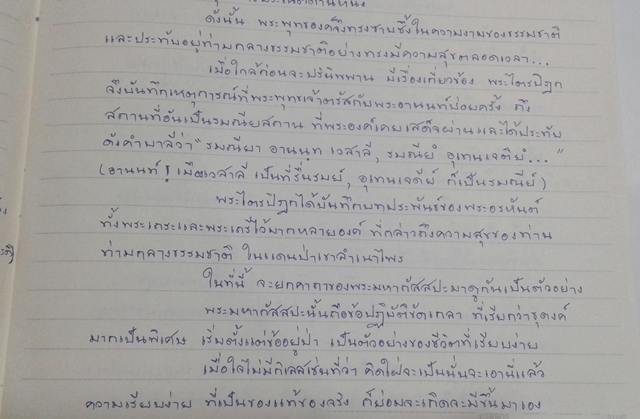 ดังนั้น พระพุทธองค์จึงทรงซาบซึ้งในความงามของธรรมชาติ
และประทับอยู่ท่ามกลางธรรมชาติอย่างทรงมีความสุขตลอดเวลา...
เมื่อใกล้ก่อนจะปรินิพพาน มีเรื่องเกี่ยวข้อง พระไตรปิฎก
จึงบันทึกเหตุการณ์ที่พระพุทธเจ้าตรัสกับพระอานนท์บ่อยครั้ง ถึง
สถานที่อันเป็นรมณียสถาน ที่พระองค์เคยเสด็จผ่านและได้ประทับ
ดังคำบาลีว่า "รมณียา อานนฺท เวสาลี, รมณียํ อุเทนเจติยํ..."
(อานนท์! เมืองเวสาลี เป็นที่รื่นรมย์, อุเทนเจดีย์ ก็เป็นรมณีย์)
พระไตรปิฎกได้บันทึกบทประพันธ์ของพระอรหันต์
ทั้งพระเถระและพระเถรีไว้มากหลายองค์ ที่กล่าวถึงความสุขของท่าน
ท่ามกลางธรรมชาติ ในแดนป่าเขาลำเนาไพร
ในที่นี้ จะยกคาถาของพระมหากัสสปะมาดูกันเป็นตัวอย่าง
พระมหากัสสปะนั้นถือข้อปฏิบัติขัดเกลา ที่เรียกว่าธุดงค์
มากเป็นพิเศษ เริ่มตั้งแต่ข้ออยู่ป่า เป็นตัวอย่างของชีวิตที่เรียบง่าย
เมื่อใจไม่มีกิเลสเช่นที่ว่า คิดใฝ่จะเป็นนั่นจะเอานี่แล้ว
ความเรียบง่าย ที่เป็นของแท้ของจริง ก็ย่อมจะเกิดจะมีขึ้นมาเอง